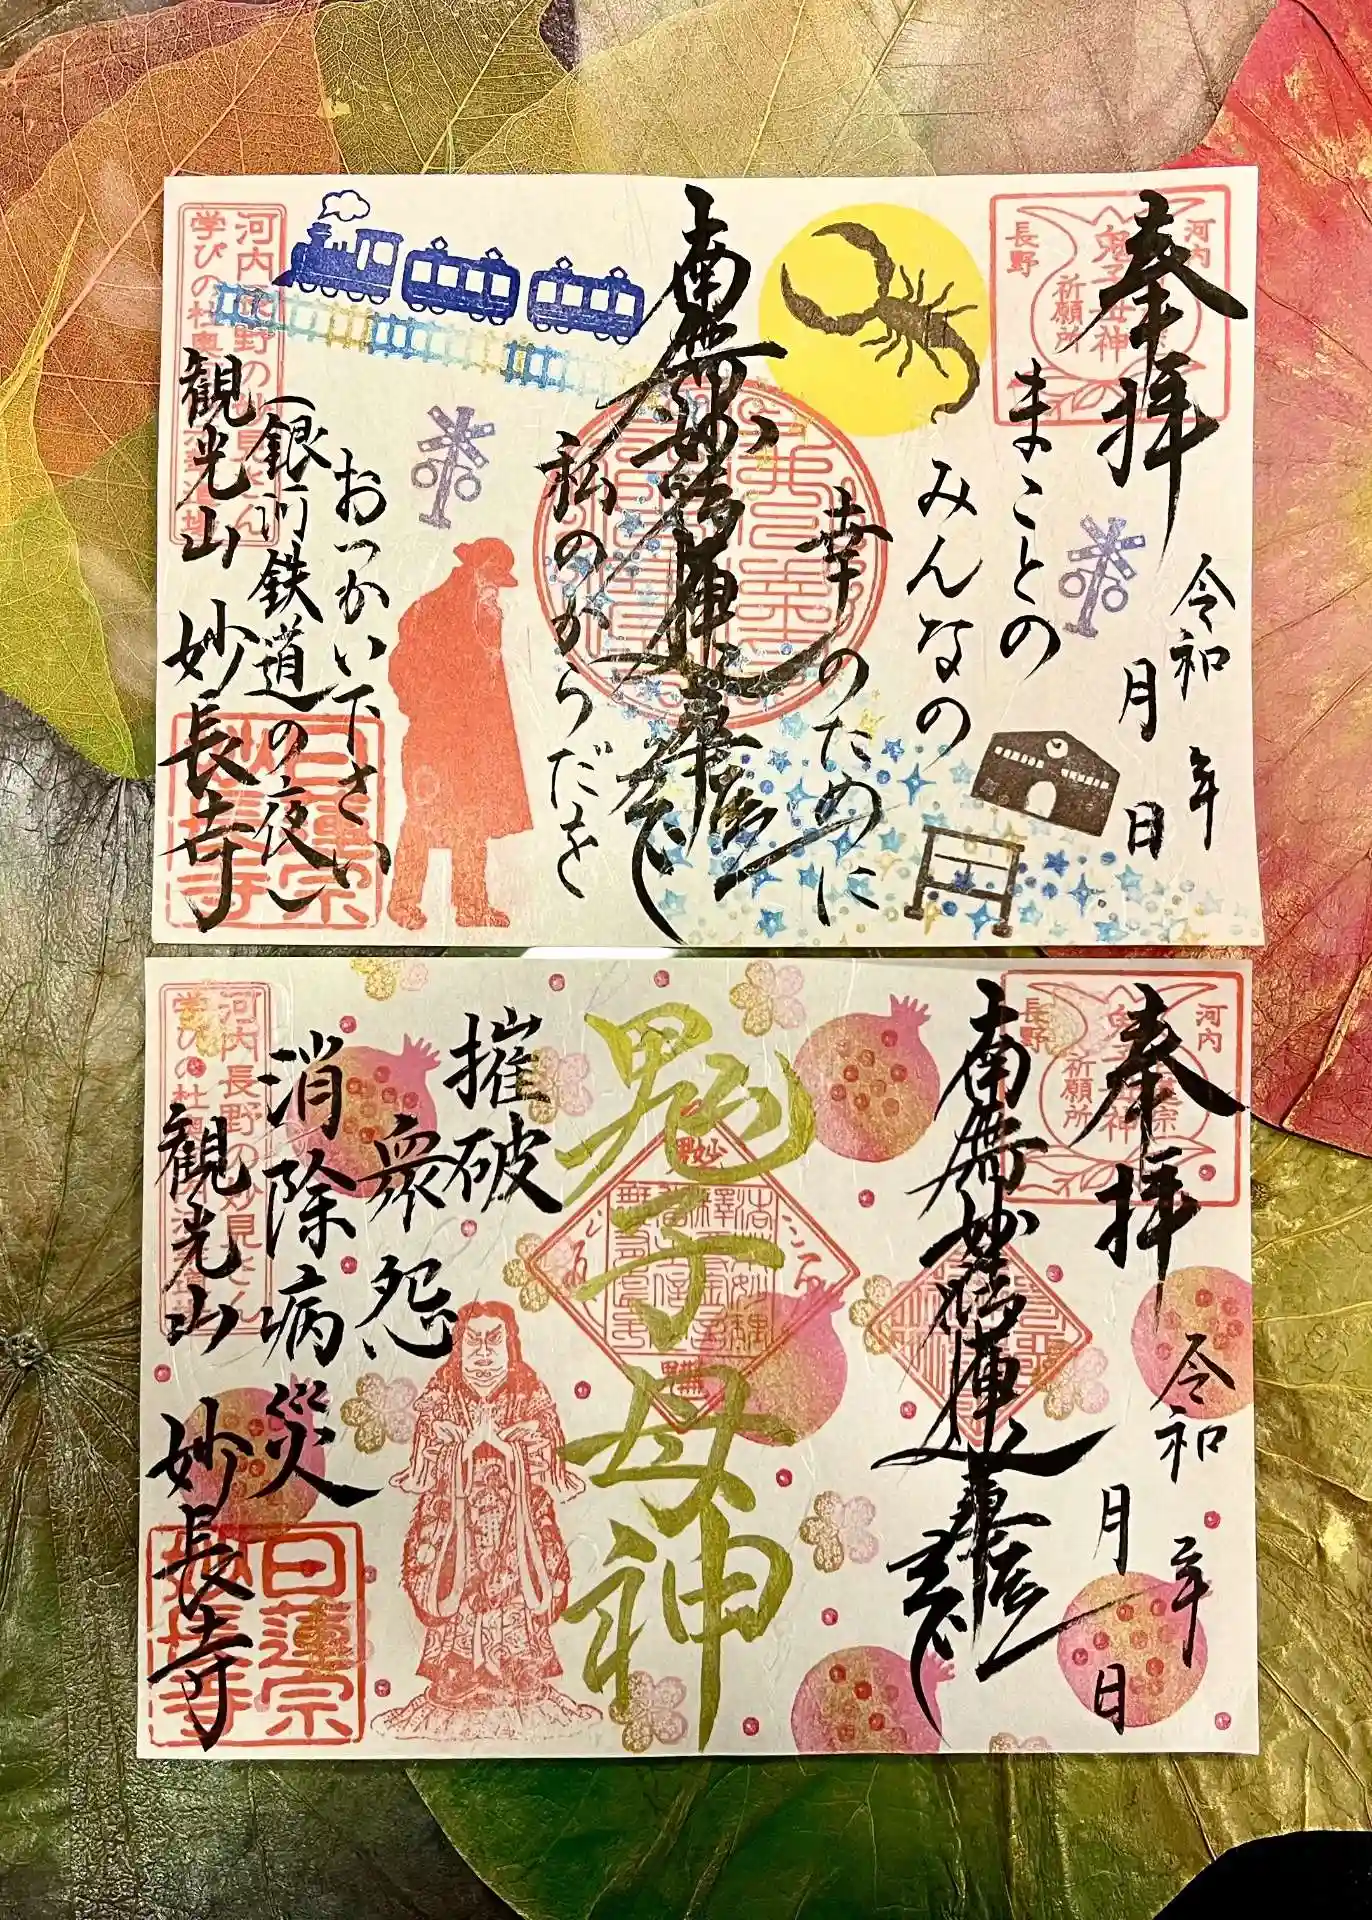 奉拝
令和 年
月 日
河内
長野
鬼子母神
祈願所
まことの
みんなの
幸のために
南無妙法蓮華経
私のからだを
おつかい下さい
(銀河鉄道の夜)
観光山 妙長寺
日蓮宗
妙長寺
奉拝
令和 年
月 日
河内
長野
祈願所
南無妙法蓮華経
鬼子母神
摧破
衆怨
消除病災
観光山 妙長寺
河内長野の妙見さん
学びの杜
日蓮宗
妙長寺